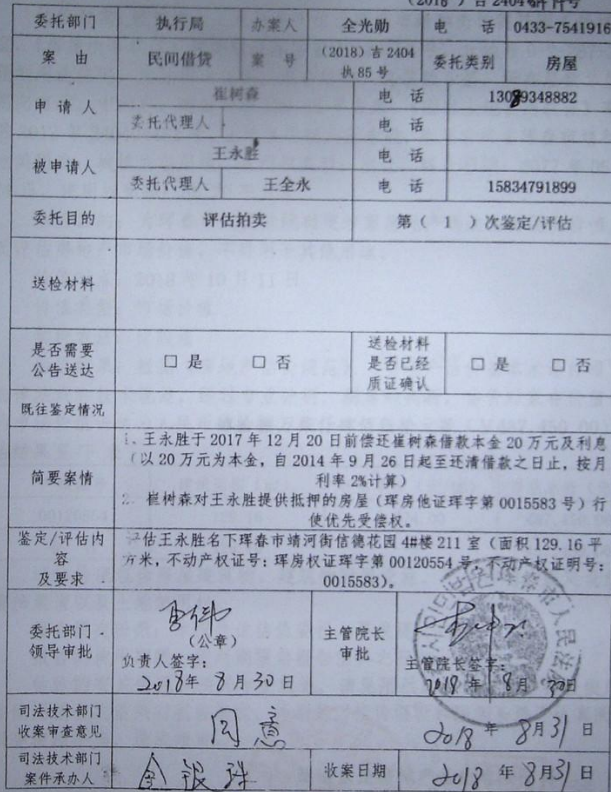 (2018)吉2404
委托部门 执行局 办案人 全光勋 电 话 0433-7541916
案 由 民间借贷 案 号 (2018)吉2404执85号 委托类别 房屋
申请人 崔树森 电 话 13089348882
委托代理人 电 话
被申请人 王永胜 电 话
委托代理人 王全永 电 话 15834791899
委托目的 评估拍卖 第(1)次鉴定/评估
送检材料
是否需要公告送达 □ 是 □ 否 送检材料是否已经质证确认 □ 是 □ 否
既往鉴定情况
简要案情
1、王永胜于2017年12月20日前偿还崔树森借款本金20万元及利息
(以20万元为本金,自2014年9月26日起至还清借款之日止,按月
利率2%计算)
2、崔树森对王永胜提供抵押的房屋(珲房他证珲字第0015583号)行
使优先受偿权。
鉴定/评估内容及要求
评估王永胜名下珲春市靖河街信德花园4#楼211室(面积129.16平
方米,不动产权证号:珲房权证珲字第00120554号,不动产权证明号:
0015583)。
委托部门领导审批 (公章) 主管院长审批
负责人签字: 主管院长签字:
2018年8月30日 2018年8月30日
司法技术部门收案审查意见 同意 2018年8月31日
司法技术部门案件承办人 金银珠 收案日期 2018年8月31日